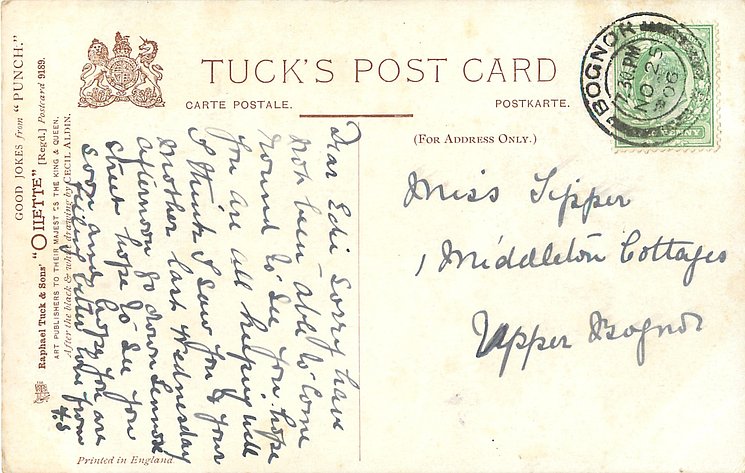 GOOD JOKES from "PUNCH."
Raphael Tuck & Sons' "OILETTE" [Regd.] Postcard 9189.
ART PUBLISHERS TO THEIR MAJESTIES THE KING & QUEEN.
After the black & white drawing by CECIL ALDIN.
TUCK'S POST CARD
CARTE POSTALE.
POSTKARTE.
(FOR ADDRESS ONLY.)
BOGNOR
7.30 PM
NO 25
06
PENNY
Dear Edi sorry have
not been able to come
round to see you hope
you are all keeping well
I think I saw you & your
Mother last Wednesday
afternoon go down Lennox
street hope to see you
soon and hope you are
feeling better now from
F.S
Miss Tipper
1 Middleton Cottages
Upper Bognor
Printed in England